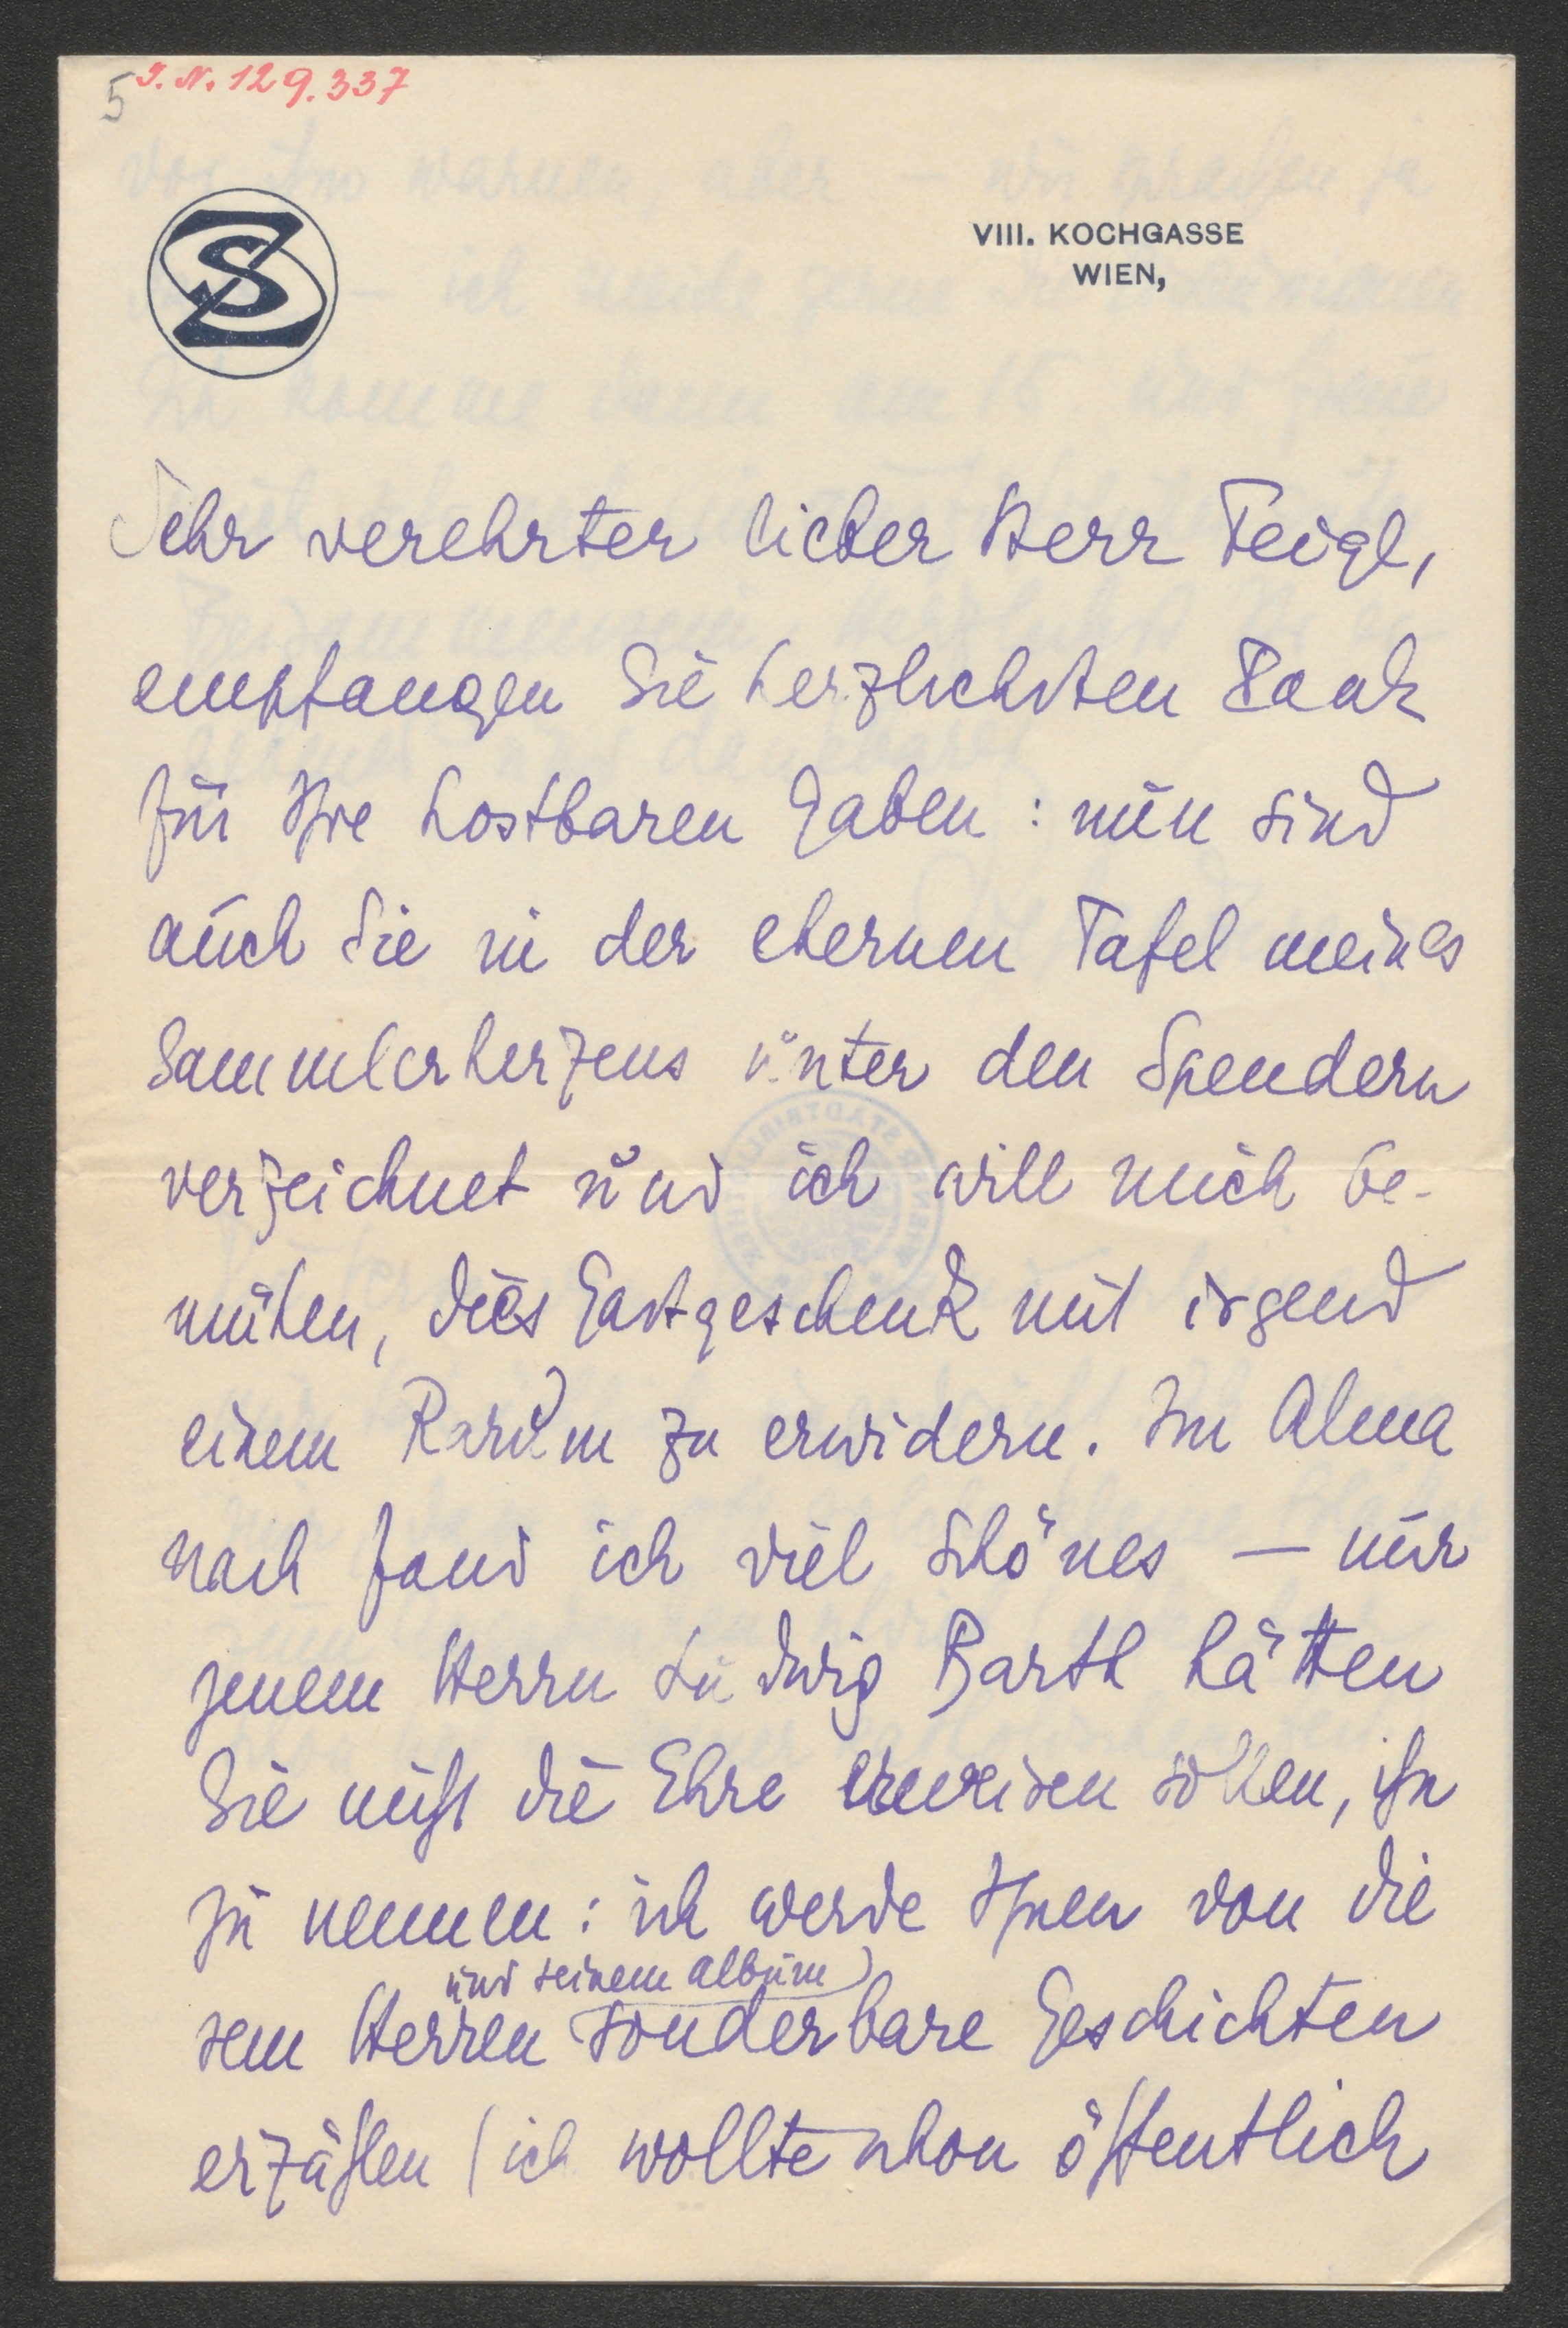 5 I.N. 129.337
SZ
VIII. KOCHGASSE
WIEN,
Sehr verehrter lieber Herr Feigl,
empfangen Sie herzlichsten Dank
für Ihre kostbaren Gaben: nun sind
auch Sie in der ehernen Tafel meines
Sammlerherzens unter den Spendern
verzeichnet und ich will mich be-
mühen, dies Gastgeschenk mit irgend
einem Rarum zu erwidern. Im Alma
nach fand ich viel Schönes — nur
jenem Herrn Ludwig Barth hätten
Sie nicht die Ehre erweisen sollen, ihn
zu nennen: ich werde Ihnen von die
und seinem Album
sem Herren sonderbare Geschichten
erzählen (ich wollte schon öffentlich